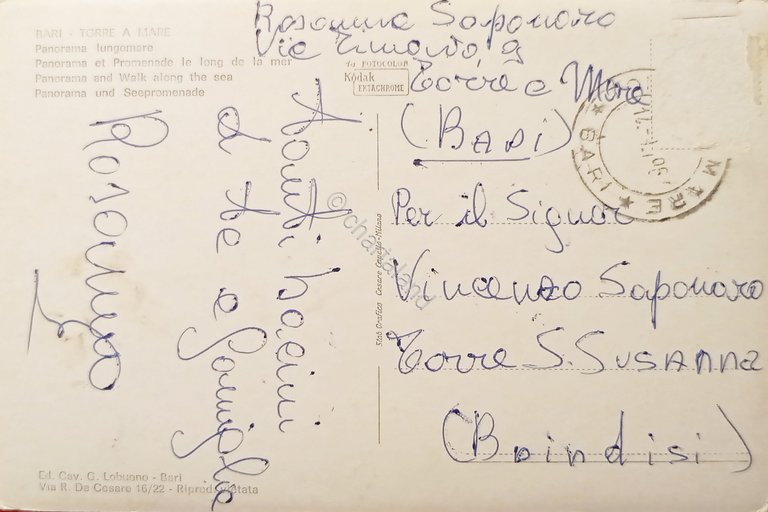 BARI - TORRE A MARE
Panorama lungomare
Panorama et Promenade le long de la mer
Panorama and Walk along the sea
Panorama und Seepromenade
Rosanna Saponaro
Via
9
Torre a Mare
(BARI)
FOTOCOLOR
Kodak
EKTACHROME
BARI
Per il Signor
Vincenzo Saponaro
Torre S. SUSANNA
(Brindisi)
tanti bacini
a te e famiglia
Rosanna
Stab. Grafico Cesare Capello - Milano
© charta
Ed. Cav. G. Lobuono - Bari
Via R. De Cesare 16/22 - Riprod. vietata